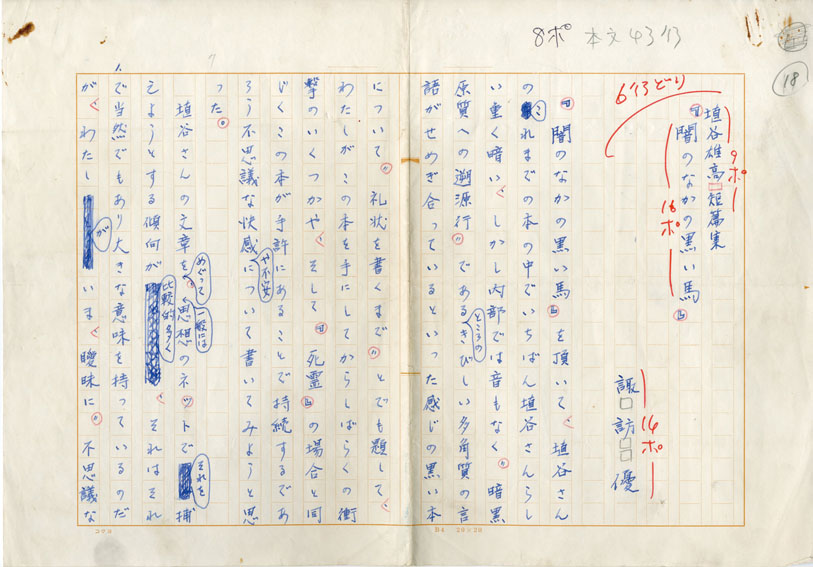 8ポ 本文43行
18
6行どり
埴谷雄高短篇集
9ポ
『闇のなかの黒い馬』
16ポ
諏訪優
14ポ
『闇のなかの黒い馬』を頂いて、埴谷さん
のこれまでの本の中でいちばん埴谷さんらし
い重く暗い、しかし内部では音もなく〝暗黒
原質への遡源行〟であるところのきびしい多角質の言
語がせめぎ合っているといった感じの黒い本
について〝礼状を書くまで〟とでも題して、
わたしがこの本を手にしてからしばらくの衝
撃のいくつかや、そして『死霊』の場合と同
じくこの本が手許にあることで持続するであ
ろう不思議な快感や不安について書いてみようと思
った。
埴谷さんの文章をめぐって、一般には思想のネットでそれを捕
えようとする傾向が比較的多く、それはそれ
で当然でもあり大きな意味を持っているのだ
が、わたしがいま、曖昧に〝不思議な
7
B4 20×20